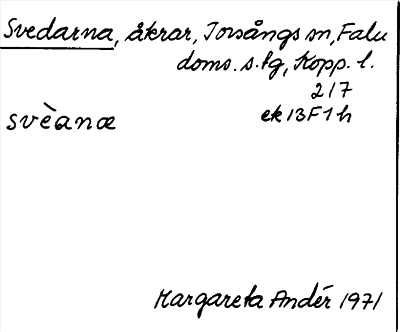 Svedarna, åkrar, Torsångs sn, Falu
doms. s. lg, Kopp. l.
217
svèanæ
ek 13F1h
Margareta Andér 1971